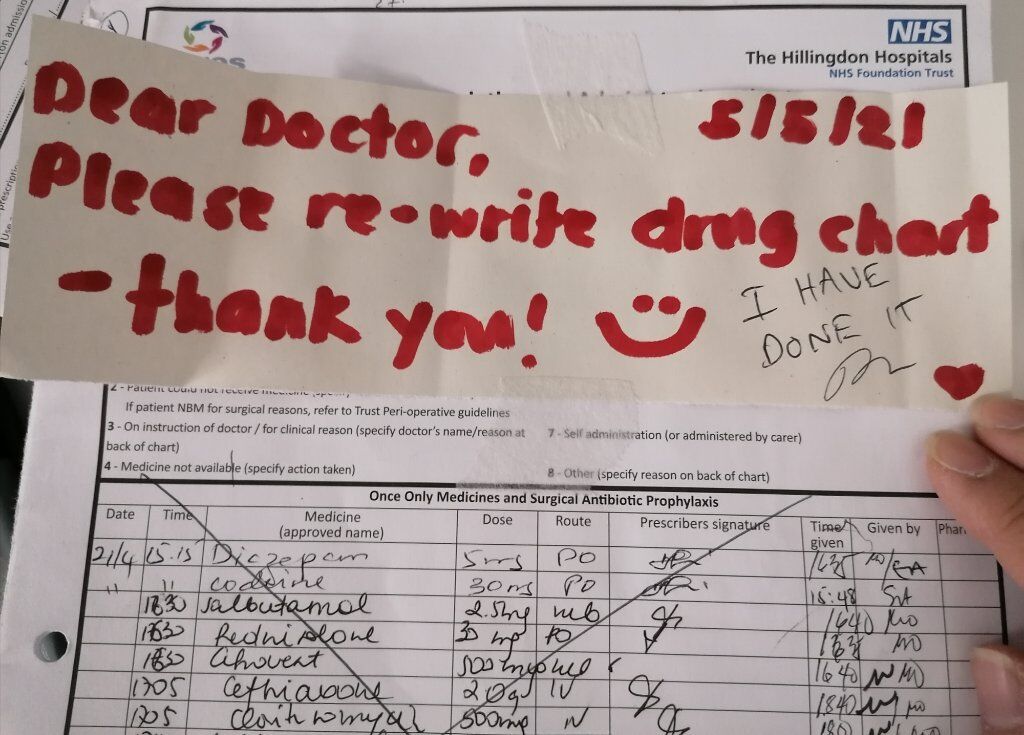 NHS
The Hillingdon Hospitals
NHS Foundation Trust
Dear Doctor, 5/5/21
Please re-write drug chart
- thank you!
I HAVE
DONE IT
If patient NBM for surgical reasons, refer to Trust Peri-operative guidelines
3 - On instruction of doctor / for clinical reason (specify doctor's name/reason at
back of chart)
7 - Self administration (or administered by carer)
4 - Medicine not available (specify action taken)
8 - Other (specify reason on back of chart)
Once Only Medicines and Surgical Antibiotic Prophylaxis
Date Time Medicine (approved name) Dose Route Prescribers signature Time given Given by
21/4 15.15 Diazepam 5mg PO
" " codeine 30mg PO 15:48
1830 salbutamol 2.5mg neb 1640 MO
1830 30 mg PO MO
1830 Atrovent 500 neb 1640
1705 IV 1840
1705 500mg IV